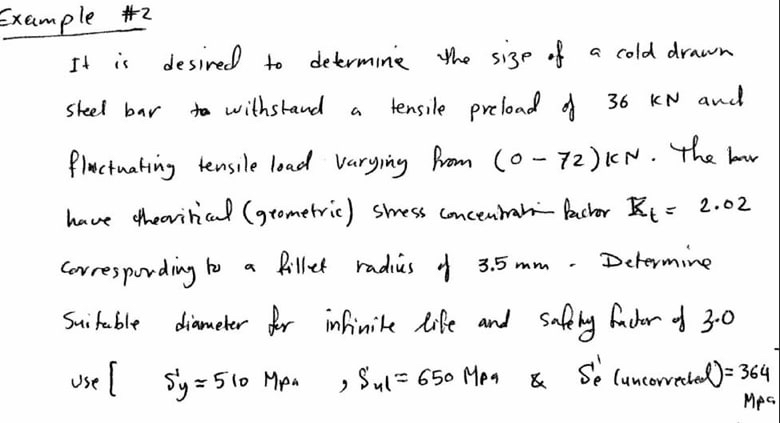 Example #2
It is desired to determine the size of a cold drawn
steel bar to withstand a tensile preload of 36 KN and
fluctuating tensile load varying from (0-72) KN. The bar
have theoritical (geometric) stress concentration factor Kt = 2.02
corresponding to a fillet radius of 3.5 mm. Determine
suitable diameter for infinite life and safety factor of 3.0
use [ Sy = 510 Mpa , Sut = 650 Mpa & Se' (uncorrected) = 364
Mpa